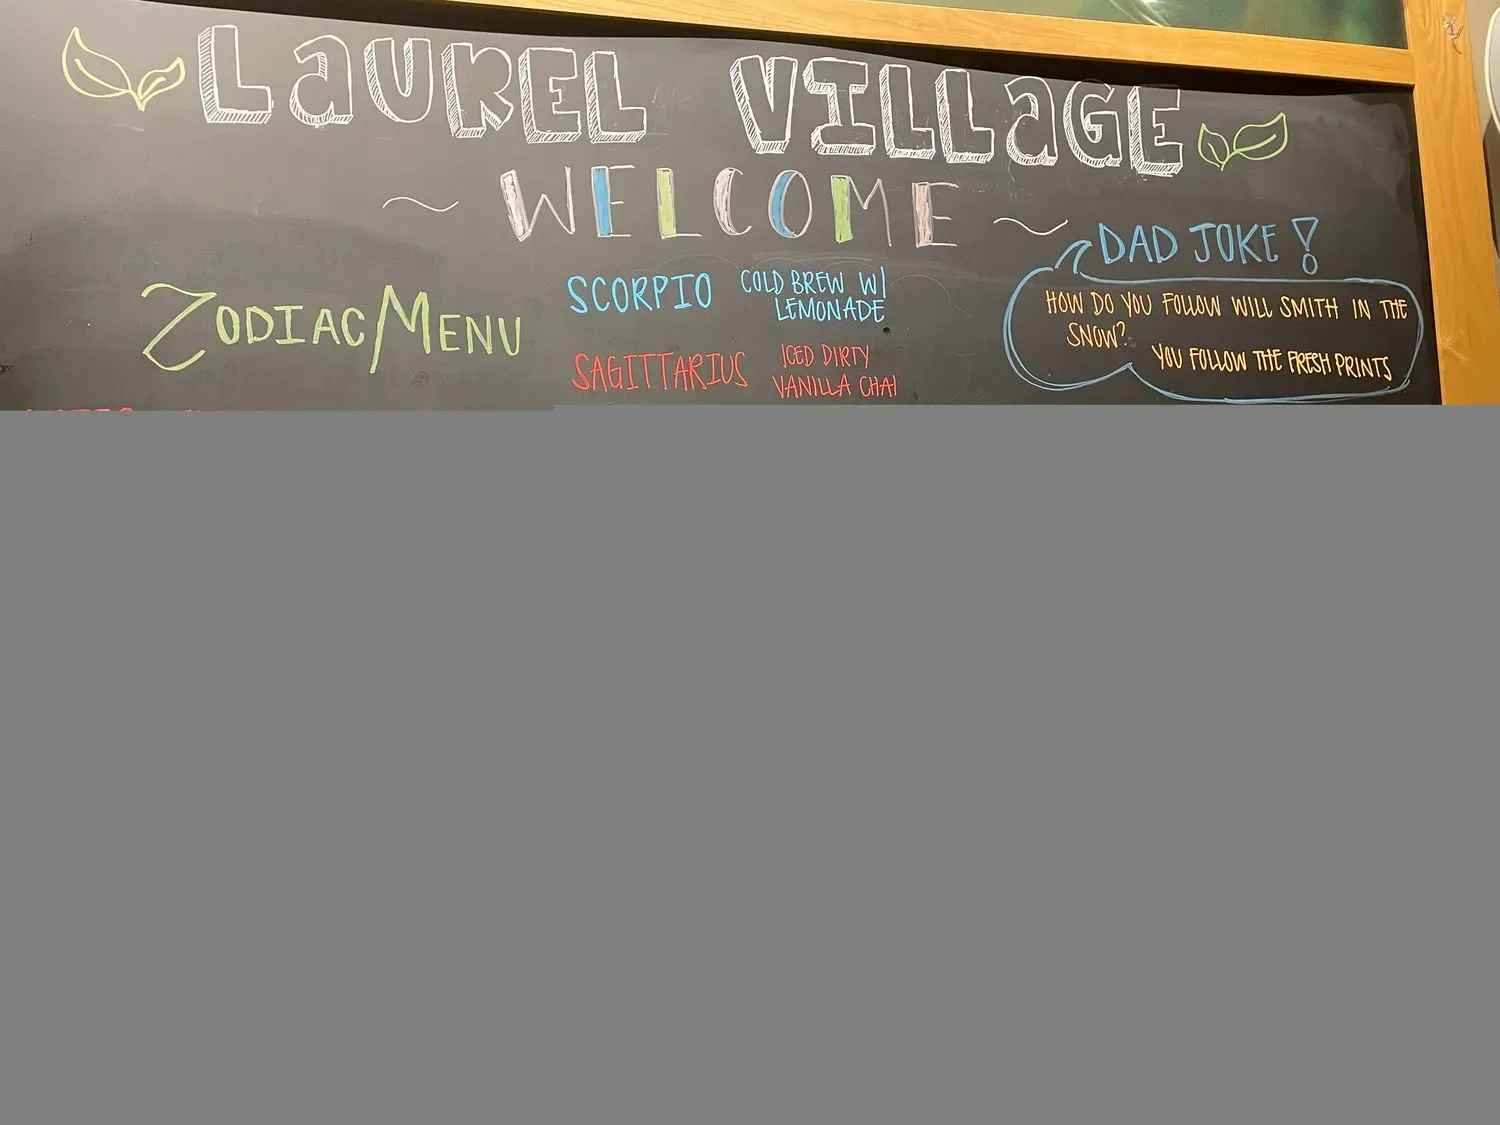 LAUREL VILLAGE
~ WELCOME ~
ZODIAC MENU
SCORPIO COLD BREW W/
LEMONADE
SAGITTARIUS ICED DIRTY
VANILLA CHAI
DAD JOKE!
HOW DO YOU FOLLOW WILL SMITH IN THE
SNOW?
YOU FOLLOW THE FRESH PRINTS